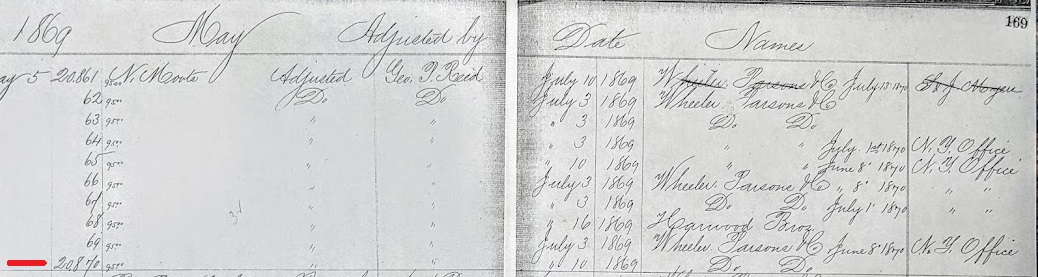 169
1869 May Adjusted by Date Names
May 5 20.861 9500 N. Moore Adjusted Geo. P. Reed July 10 1869 Wheeler Parsons & C July 13 1870
62 9500 Do Do July 3 1869 Wheeler Parsons & C
63 9500 " " " 3 1869 Do Do
64 9500 " " " 3 1869 " " July 1st 1870 N. Y. Office
65 9500 " " " 10 1869 " " June 8 1870 N. Y. Office
66 9500 " " July 3 1869 Wheeler Parsons & C " 8 1870 " "
67 9500 " " " 3 1869 Do Do July 1 1870 " "
68 9500 " " " 16 1869 Harwood Bros
69 9500 " " July 3 1869 Wheeler Parsons & C June 8 1870 N. Y. Office
20.870 9500 " " " 10 1869 Do Do